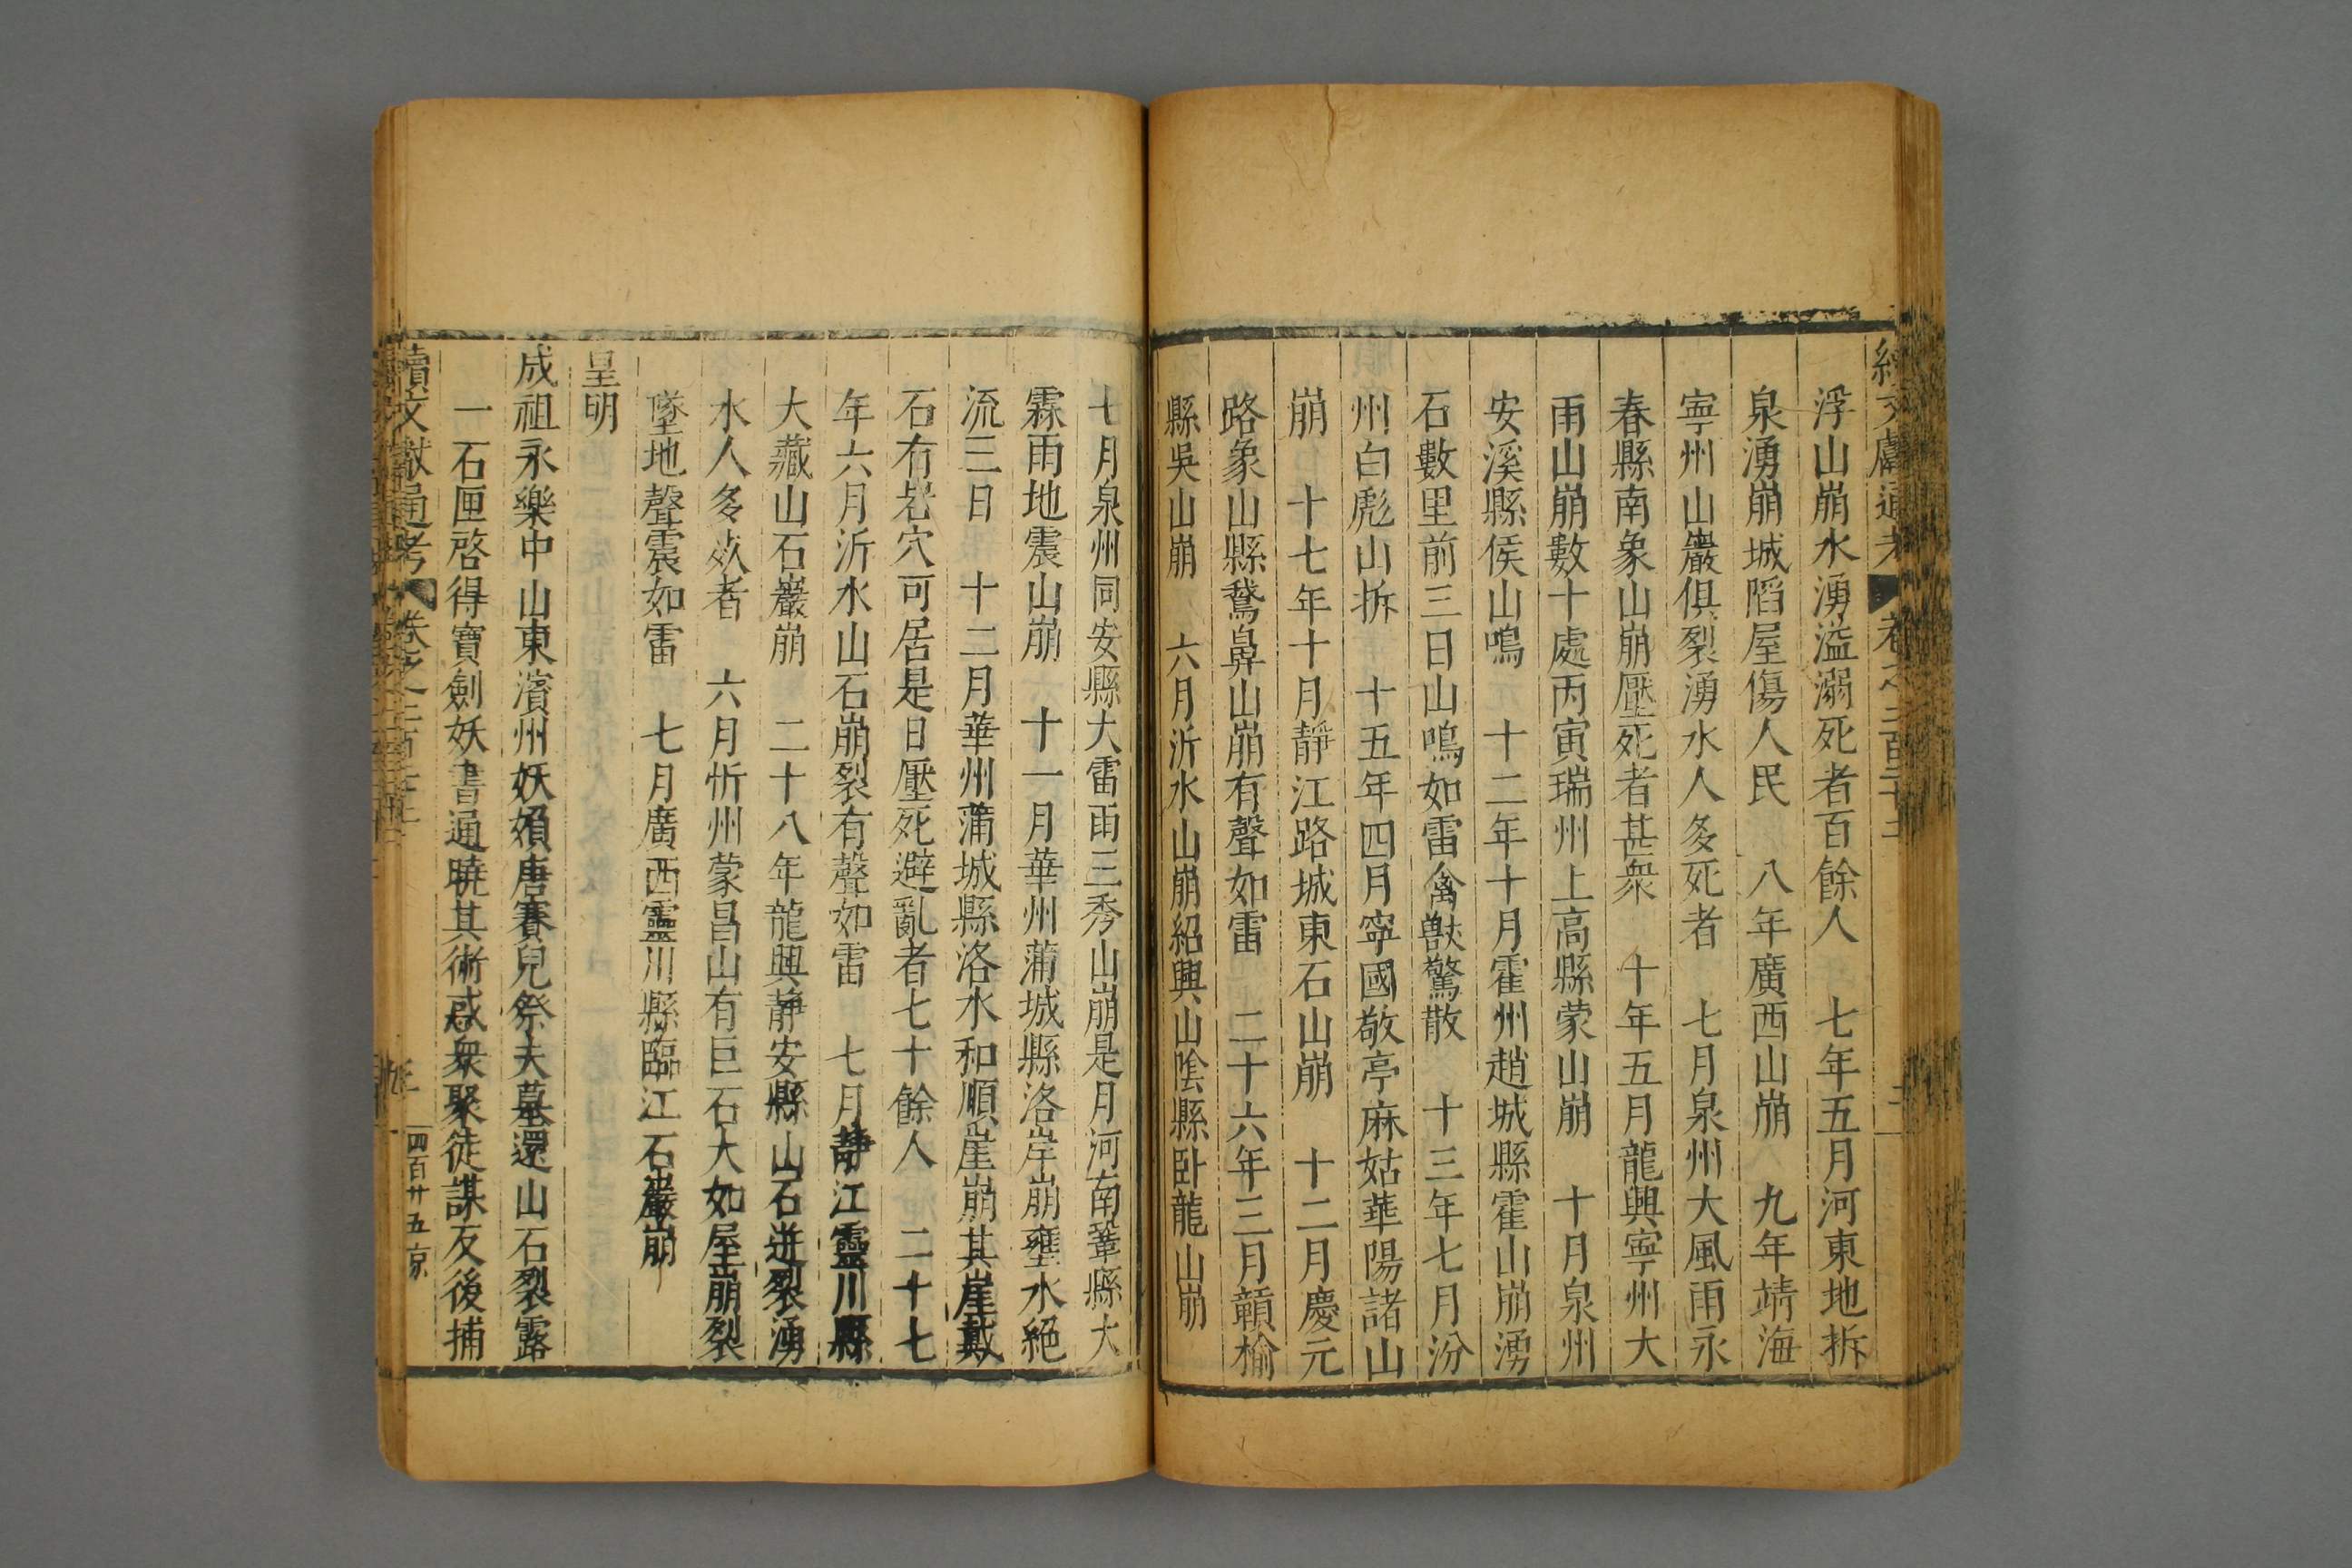 續文獻通考 卷之二百二十二
浮山崩水湧溢溺死者百餘人 七年五月河東地拆
泉湧崩城陷屋傷人民 八年廣西山崩 九年靖海
寧州山巖俱裂湧水人多死者 七月泉州大風雨永
春縣南象山崩壓死者甚衆 十年五月龍興寧州大
雨山崩數十處丙寅瑞州上高縣蒙山崩 十月泉州
安溪縣侯山鳴 十二年十月霍州趙城縣霍山崩湧
石數里前三日山鳴如雷禽獸驚散 十三年七月汾
州白彪山拆 十五年四月寧國敬亭麻姑華陽諸山
崩 十七年十月靜江路城東石山崩 十二月慶元
路象山縣鵞鼻山崩有聲如雷 二十六年三月贛榆
縣吳山崩 六月沂水山崩紹興山陰縣卧龍山崩
七月泉州同安縣大雷雨三秀山崩是月河南鞏縣大
霖雨地震山崩 十一月華州蒲城縣洛岸崩壅水絕
流三日 十二月華州蒲城縣洛水和順崖崩其崖戴
石有岩穴可居是日壓死避亂者七十餘人 二十七
年六月沂水山石崩裂有聲如雷 七月静江靈川縣
大藏山石巖崩 二十八年龍興靜安縣山石迸裂湧
水人多死者 六月忻州蒙昌山有巨石大如屋崩裂
墜地聲震如雷 七月廣西靈川縣臨江石巖崩
皇明
成祖永樂中山東濱州妖婦唐賽兒祭夫墓還山石裂露
一石匣啓得寶劍妖書通曉其術惑衆聚徒謀反後捕
續文獻通考 卷之二百二十二
四百廿五 京